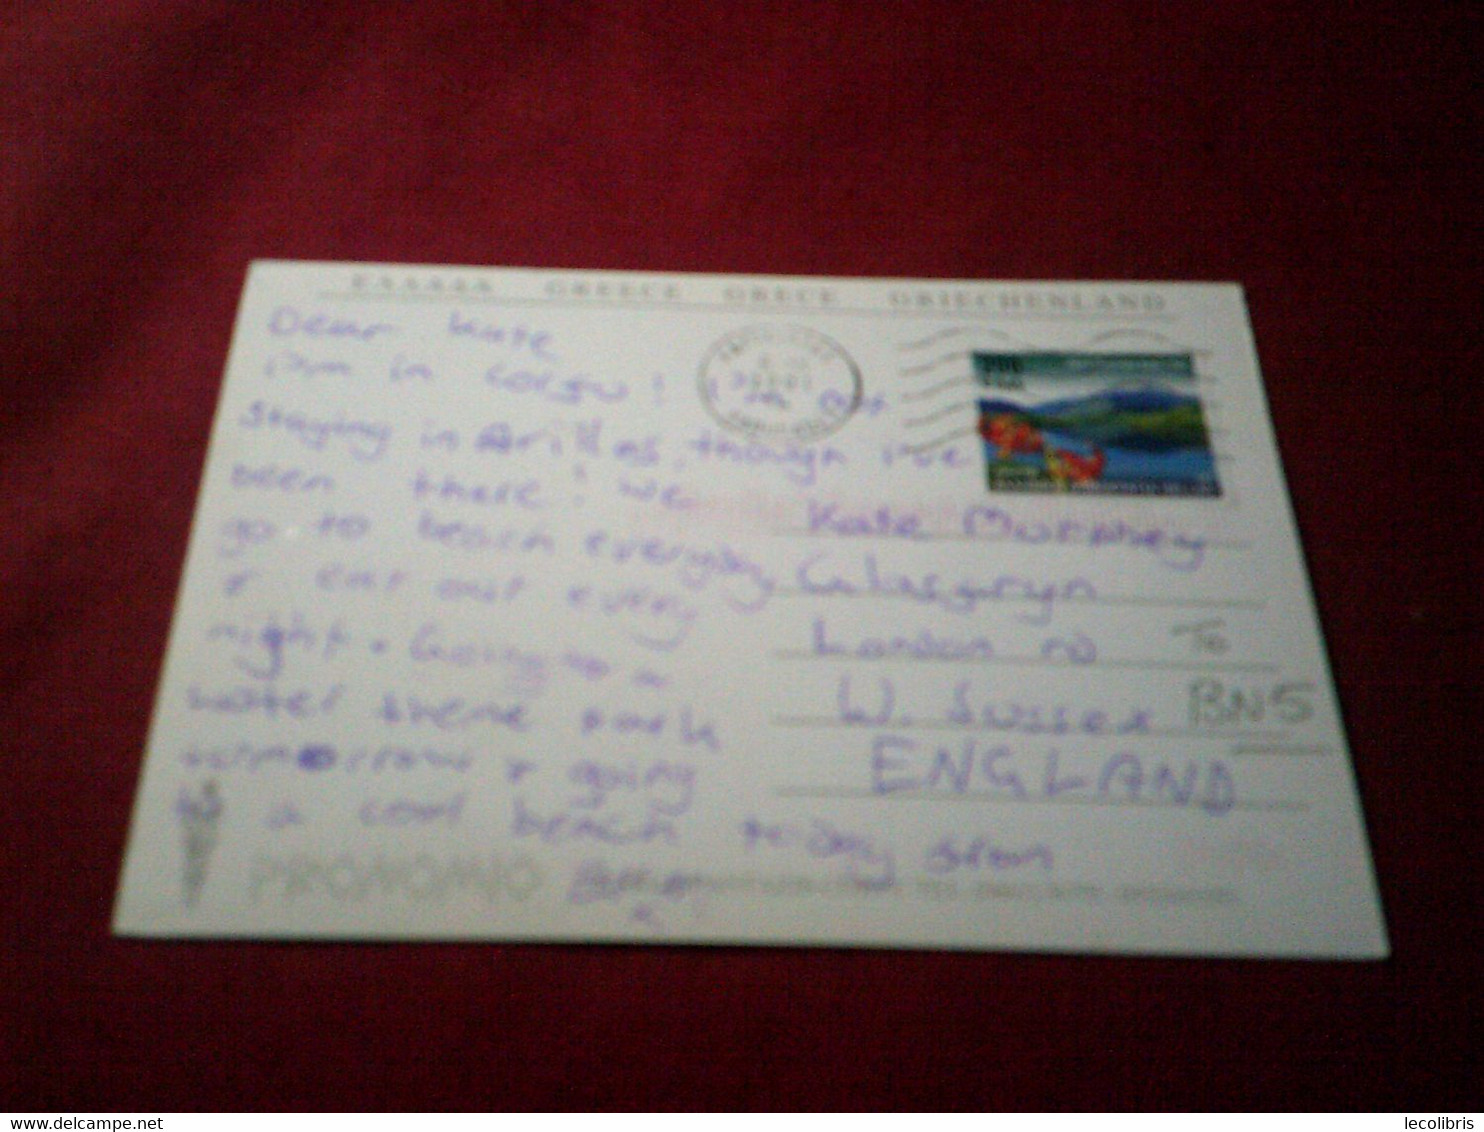 ΕΛΛΑΔΑ GREECE GRECE GRIECHENLAND
Dear Kate
I'm in Corfu! I'm not
staying in Arillas, though I've
been there! We
go to beach everyday,
& eat out every
night. Going to a
water theme park
tomorrow & going
to a cool beach today
200
Kate Murphey
London rd To
W. Sussex BN5
ENGLAND
PRONOMIO
lecolibris